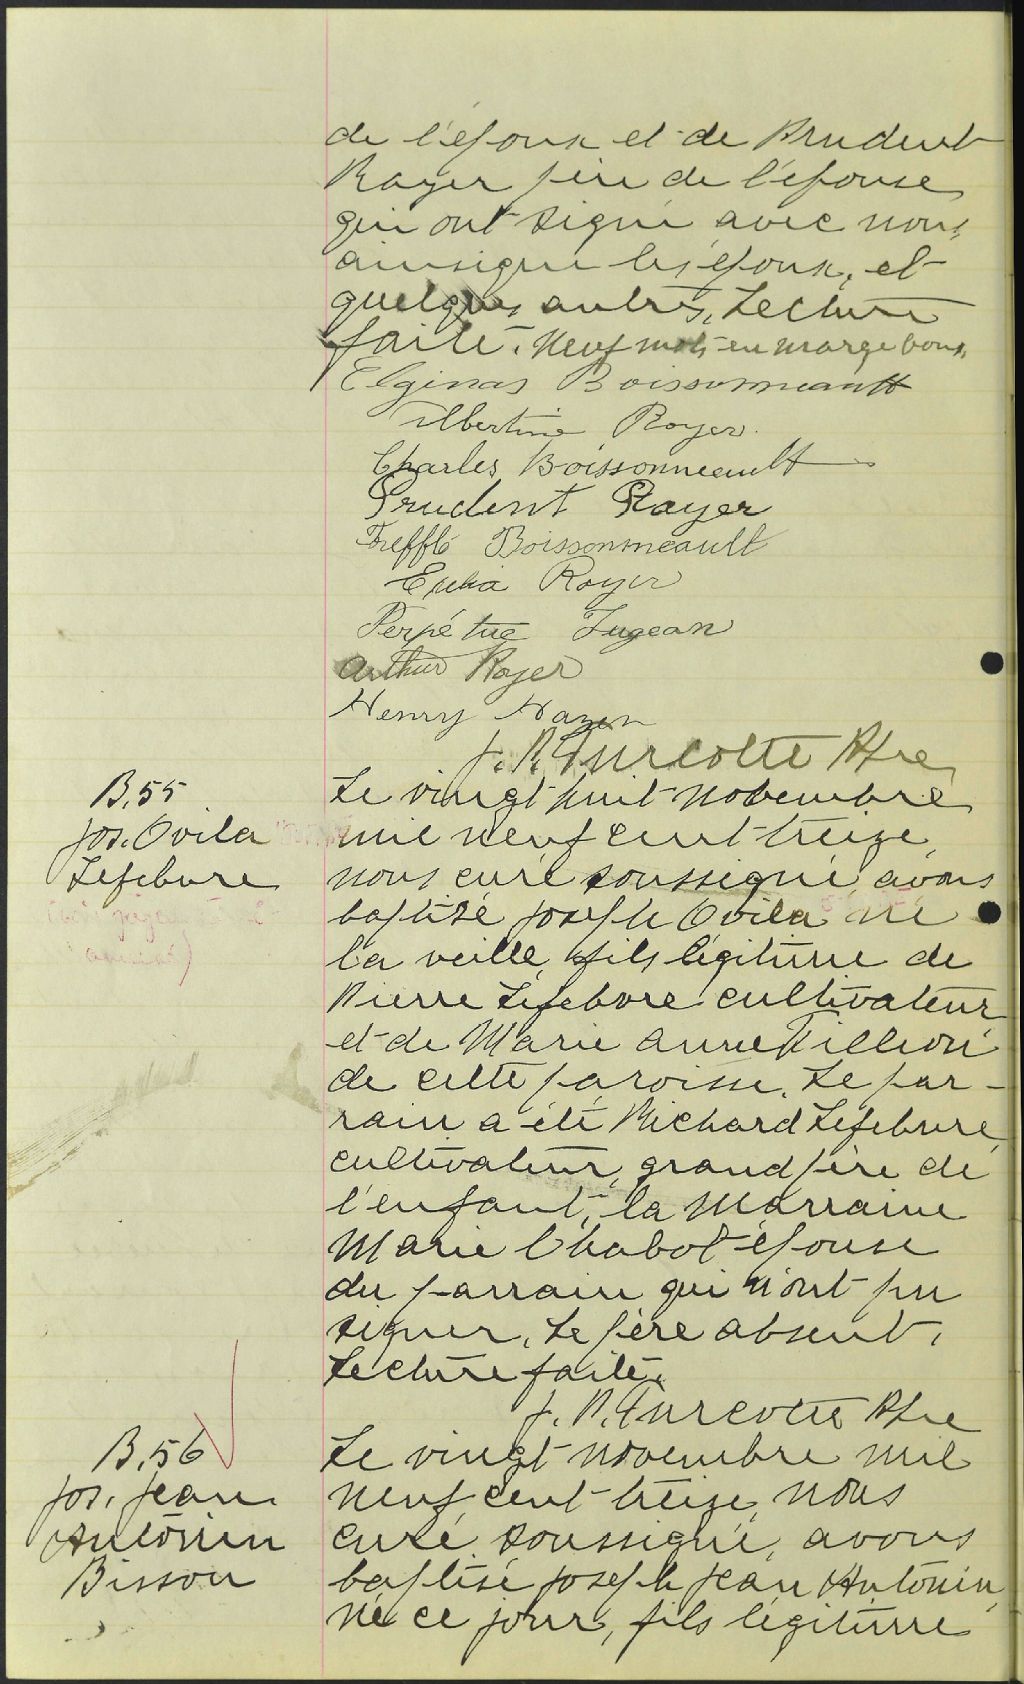 de l'époux et de Prudent
Royer père de l'épouse
qui ont signé avec nous
ainsi que les époux, et
quelques autres, Lecture
faite. Neuf mots en marge bons.
Elginas Boissonneault
Albertine Royer.
Charles Boissonneault
Prudent Royer
Trefflé Boissonneault
Royer
Perpétue
Arthur Royer
Henry
J. P. Turcotte Ptre
B. 55
Jos. Ovila
Lefebvre
Le vingt huit novembre
mil neuf cent treize,
nous curé soussigné, avons
baptisé Joseph Ovila né
la veille, fils légitime de
Pierre Lefebvre cultivateur
et de Marie Anne Fillion
de cette paroisse. Le par-
rain a été Richard Lefebvre,
cultivateur, grand père de
l'enfant, la marraine
Marie Chabot épouse
du parrain qui n'ont pu
signer. Le père absent.
Lecture faite.
J. P. Turcotte Ptre
B. 56
Jos. Jean
Antonin
Bisson
Le vingt novembre mil
neuf cent treize, nous
curé soussigné, avons
baptisé Joseph Jean Antonin,
né ce jour, fils légitime